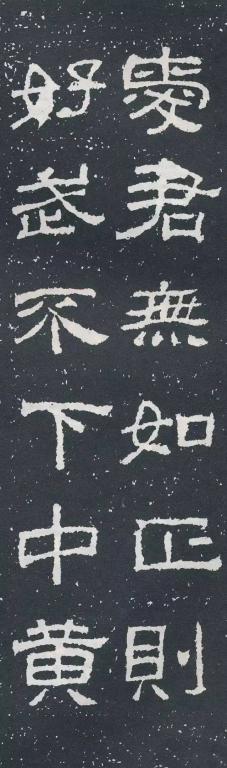 愛君無如正則
好武不下中黄